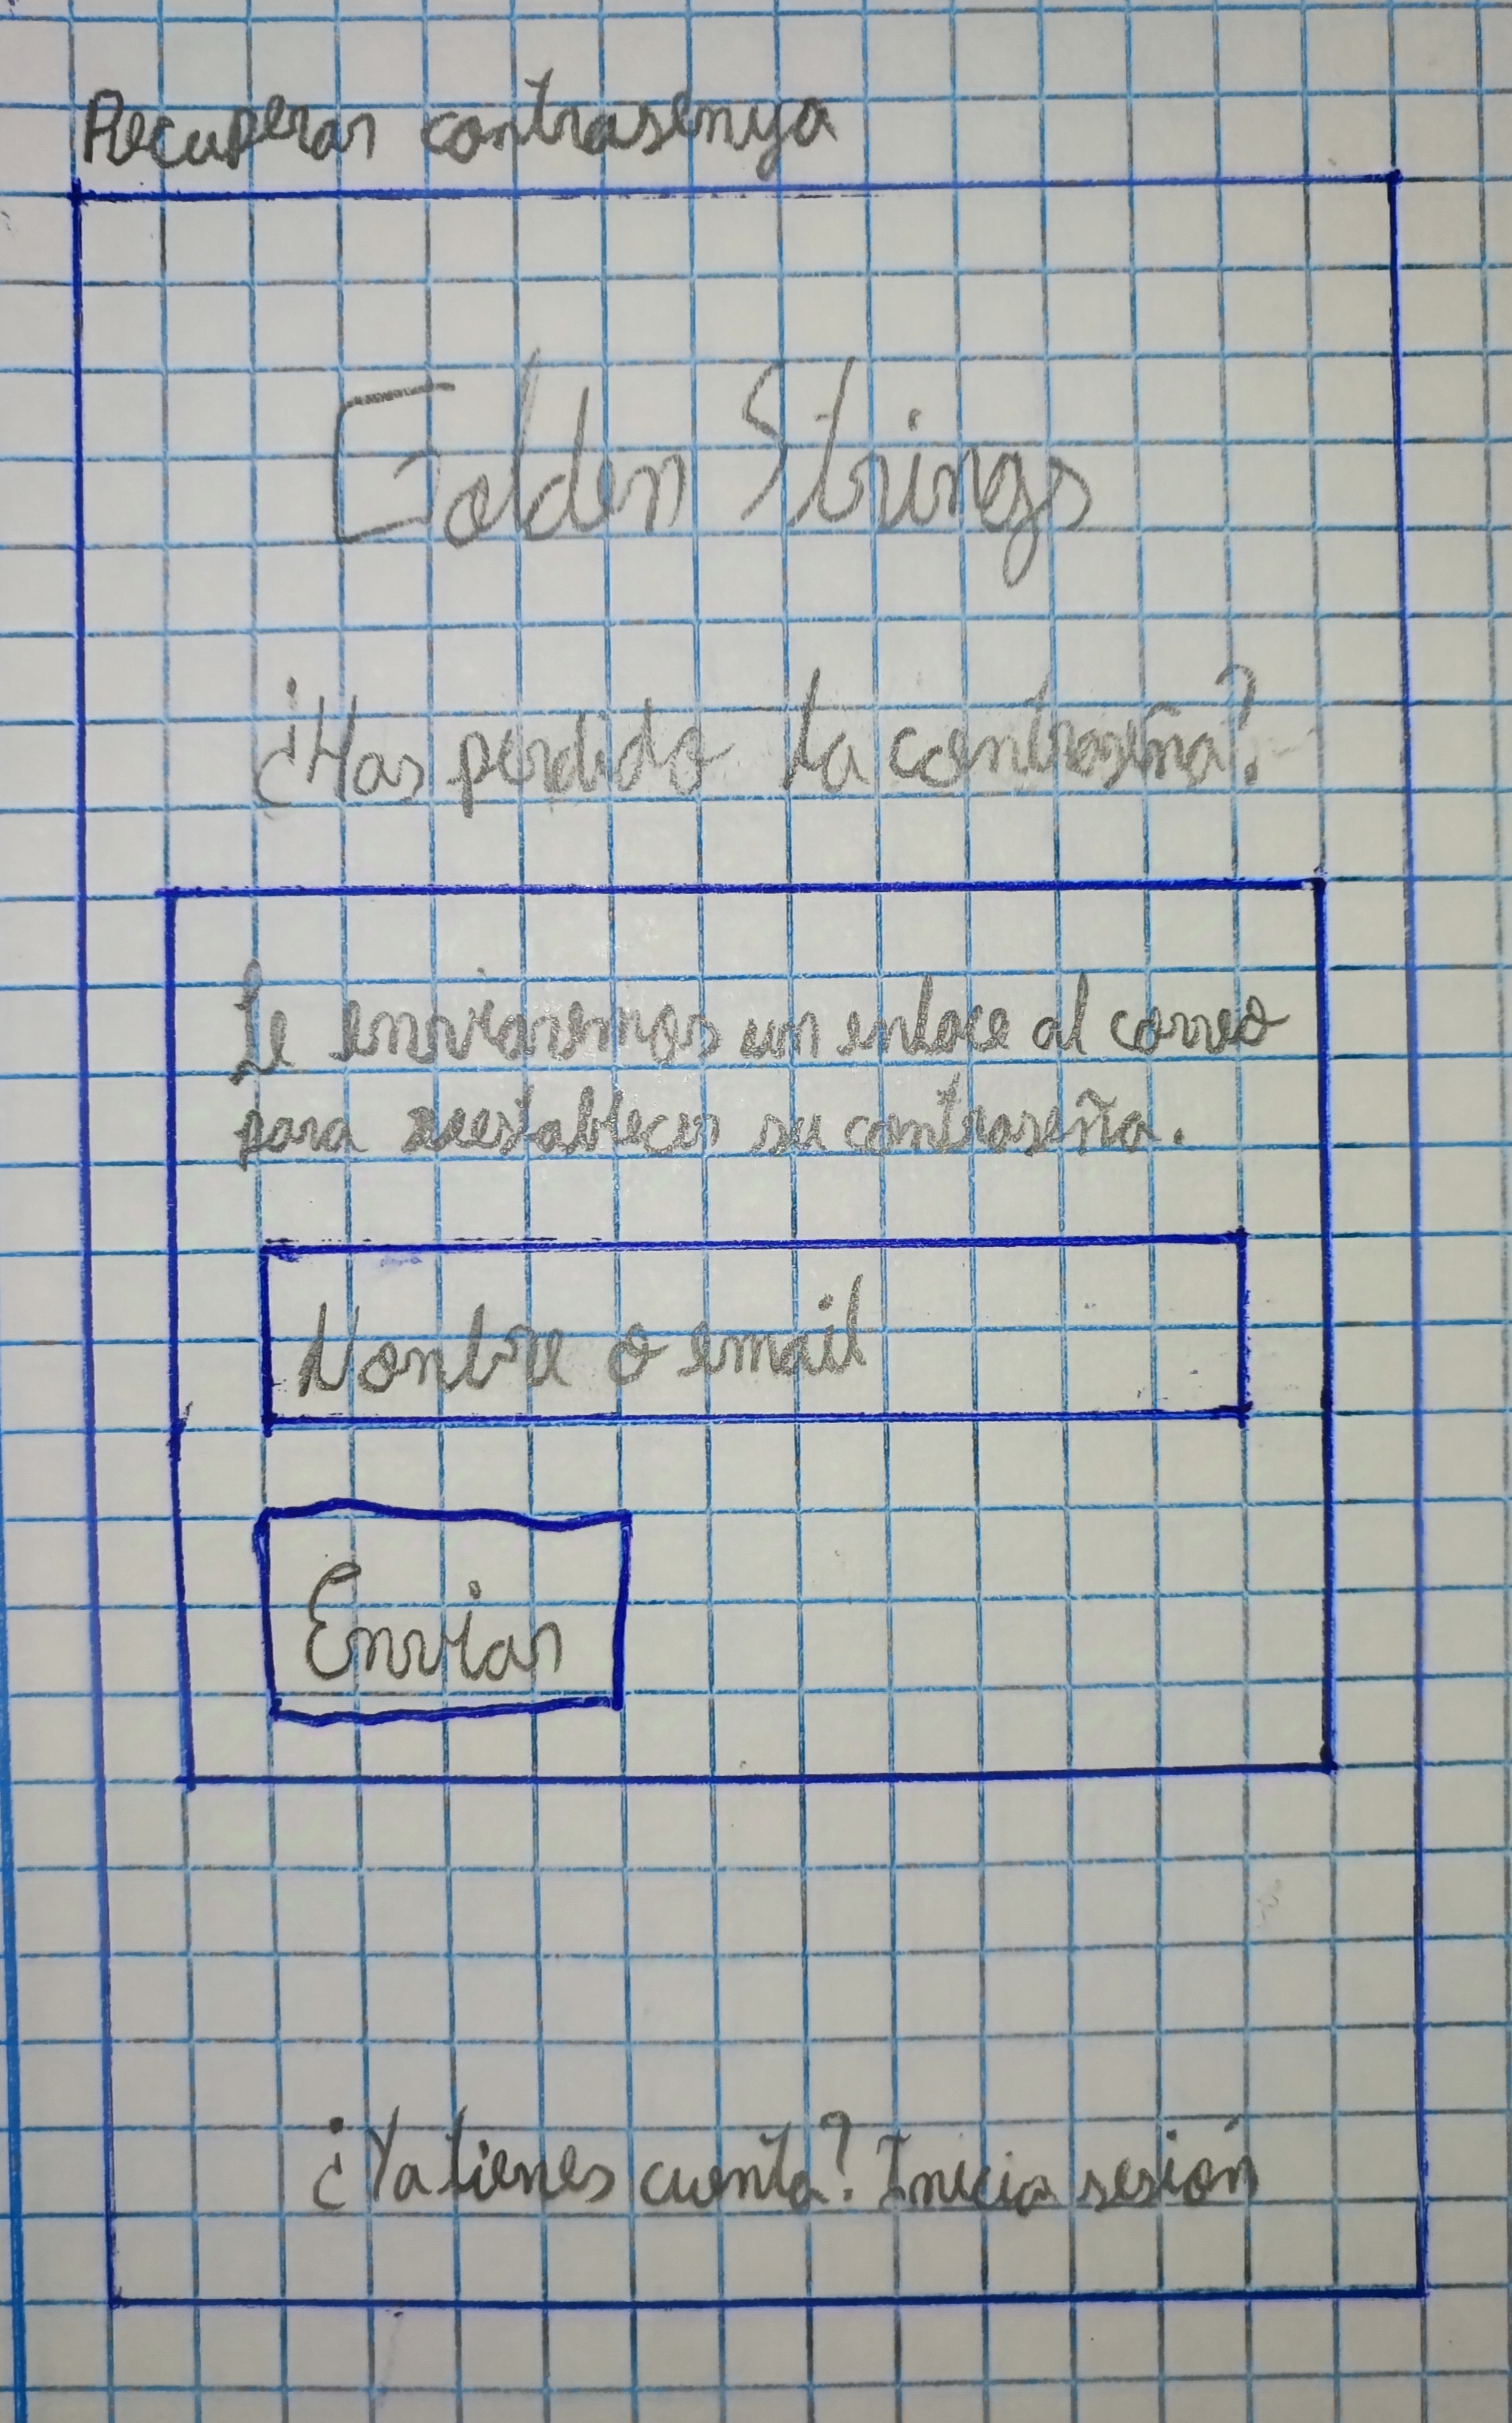 Recuperar contrasenya
Golden Strings
¿Has perdido la contraseña?
Le enviaremos un enlace al correo
para reestablecer su contraseña.
Nombre o email
Enviar
¿Ya tienes cuenta? Inicia sesión